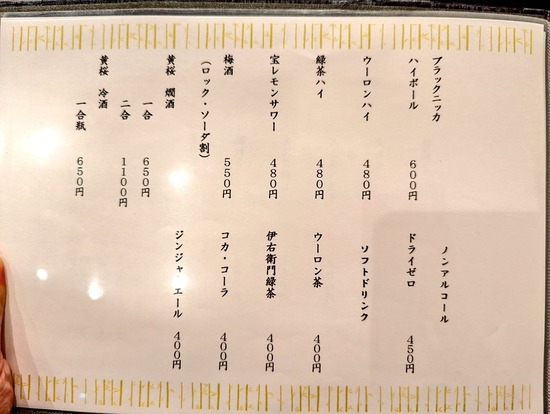 ブラックニッカ
ハイボール 600円
ウーロンハイ 480円
緑茶ハイ 480円
宝レモンサワー 480円
梅酒 550円
(ロック・ソーダ割)
黄桜 燗酒
一合 650円
二合 1100円
黄桜 冷酒
一合瓶 650円
ノンアルコール
ドライゼロ 450円
ソフトドリンク
ウーロン茶 400円
伊右衛門緑茶 400円
コカ・コーラ 400円
ジンジャ エール 400円